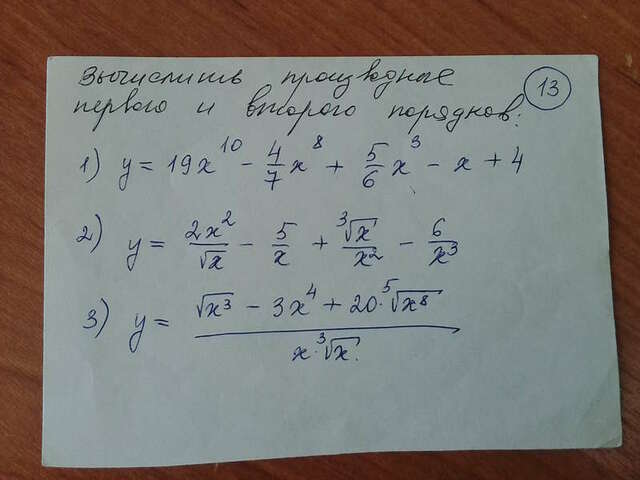 Вычислить производные
первого и второго порядков:
13
1) y = 19x^10 - 4/7 x^8 + 5/6 x^3 - x + 4
2) y = 2x^2/√x - 5/x + ∛x/x^2 - 6/x^3
3) y = (√x^3 - 3x^4 + 20·⁵√x^8)/(x·∛x)